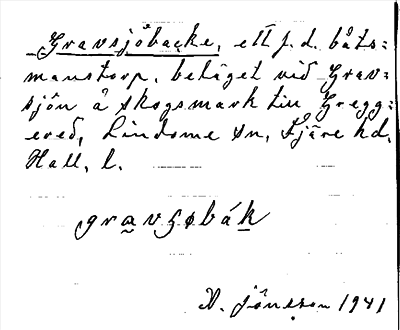 Gravsjöbacke, ett f.d. båts=
manstorp, beläget vid Grav=
sjön å skogsmark till Gregg=
ered, Lindome sn, Fjäre hd,
Hall. l.
gravsøbák
N. Jönsson 1941